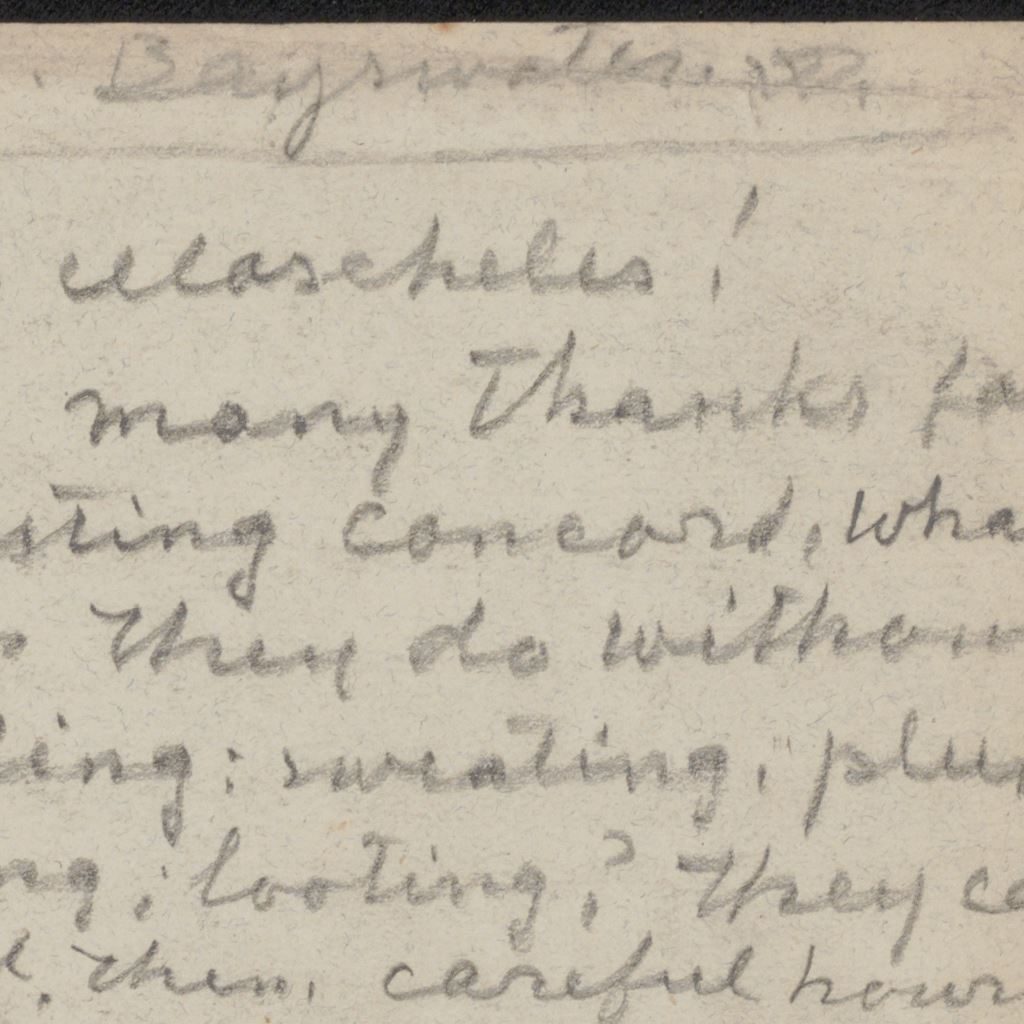 Bayswater.
Moscheles!
many thanks fo
sting concord, wha
they do withou
ing: sweating, plu
ng, looting,? they ca
then, careful hour